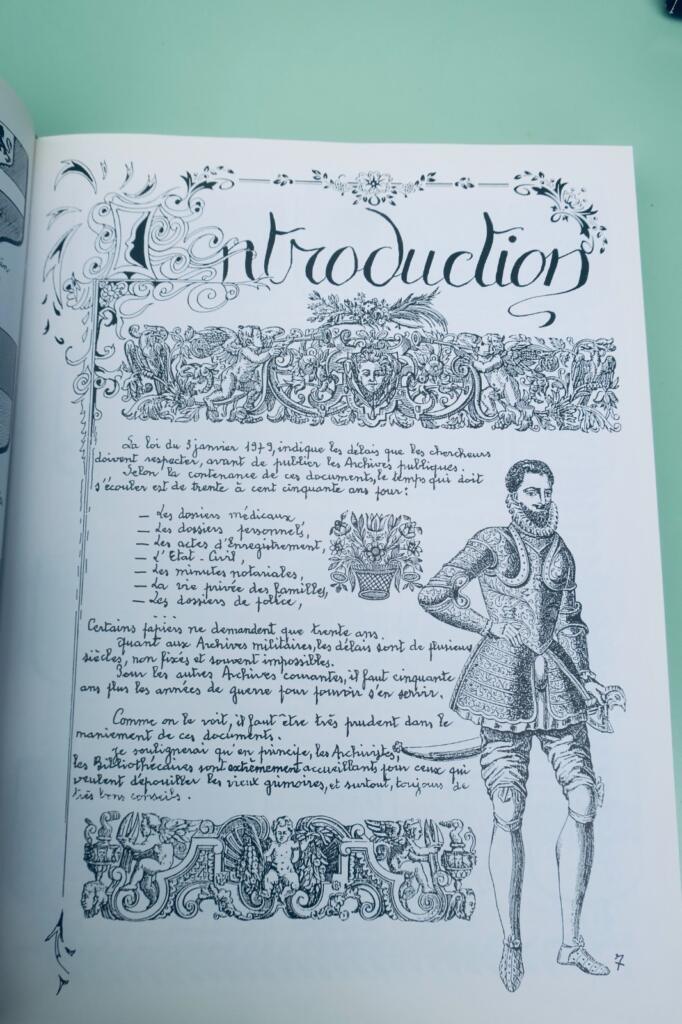 Introduction
La loi du 3 janvier 1979, indique les délais que les chercheurs
doivent respecter, avant de publier les Archives publiques.
Selon la contenance de ces documents, le temps qui doit
s'écouler est de trente à cent cinquante ans pour:
— Les dossiers médicaux
— Les dossiers personnels,
— Les actes d'Enregistrement,
— L'Etat-Civil,
— Les minutes notariales,
— La vie privée des familles,
— Les dossiers de police,
Certains papiers ne demandent que trente ans.
Quant aux Archives militaires, les délais sont de plusieurs
siècles, non fixés et souvent impossibles.
Pour les autres Archives courantes, il faut cinquante
ans plus les années de guerre pour pouvoir s'en servir.
Comme on le voit, il faut être très prudent dans le
maniement de ces documents.
Je soulignerai qu'en principe, les Archivistes,
les Bibliothécaires sont extrêmement accueillants pour ceux qui
veulent dépouiller les vieux grimoires, et surtout, toujours de
très bons conseils.
7